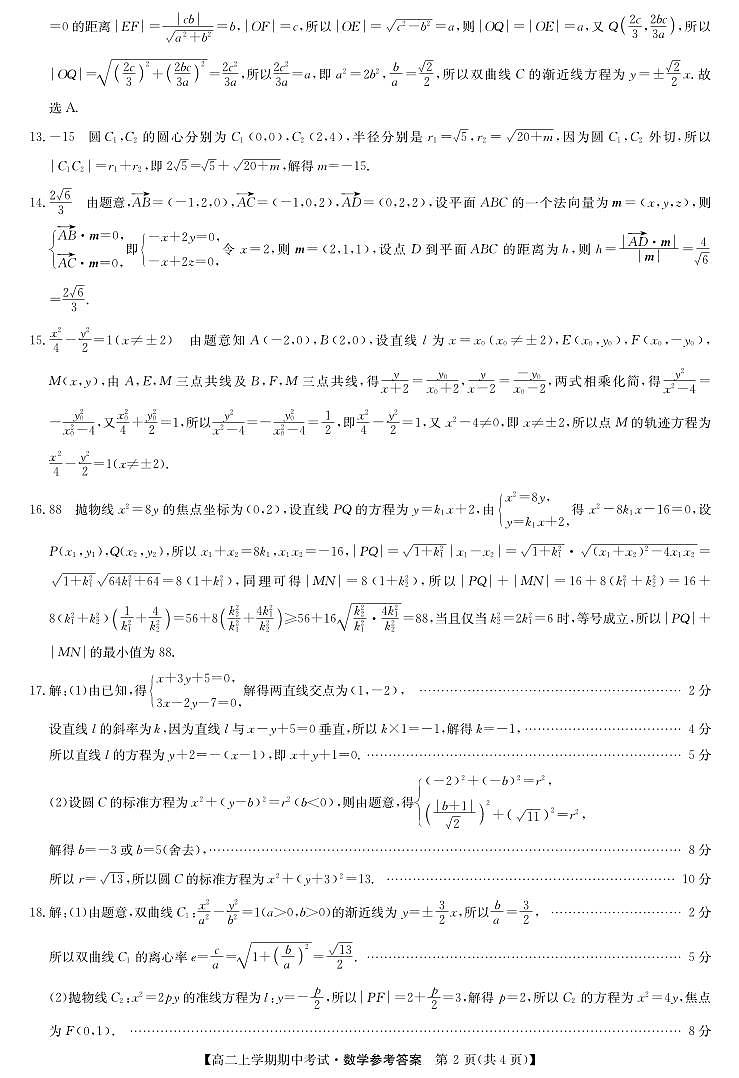 =0 的距离|EF|=|cb|/√(a²+b²)=b,|OF|=c,所以|OE|=√(c²-b²)=a,则|OQ|=|OE|=a,又 Q(2c/3,2bc/3a),所以
|OQ|=√((2c/3)²+(2bc/3a)²)=2c²/3a,所以2c²/3a=a,即 a²=2b²,b/a=√2/2,所以双曲线 C 的渐近线方程为 y=±√2/2 x.故
选 A.
13.-15 圆 C₁,C₂ 的圆心分别为 C₁(0,0),C₂(2,4),半径分别是 r₁=√5,r₂=√(20+m),因为圆 C₁,C₂ 外切,所以
|C₁C₂|=r₁+r₂,即 2√5=√5+√(20+m),解得 m=-15.
14.2√6/3 由题意,AB→=(-1,2,0),AC→=(-1,0,2),AD→=(0,2,2),设平面 ABC 的一个法向量为 m=(x,y,z),则
{AB→·m=0, AC→·m=0,即{-x+2y=0, -x+2z=0,令 x=2,则 m=(2,1,1),设点 D 到平面 ABC 的距离为 h,则 h=|AD→·m|/|m|=4/√6
=2√6/3.
15.x²/4-y²/2=1(x≠±2) 由题意知 A(-2,0),B(2,0),设直线 l 为 x=x₀(x₀≠±2),E(x₀,y₀),F(x₀,-y₀),
M(x,y),由 A,E,M 三点共线及 B,F,M 三点共线,得y/(x+2)=y₀/(x₀+2),y/(x-2)=-y₀/(x₀-2),两式相乘化简,得y²/(x²-4)=
-y₀²/(x₀²-4),又x₀²/4+y₀²/2=1,所以y²/(x²-4)=-y₀²/(x₀²-4)=1/2,即x²/4-y²/2=1,又 x²-4≠0,即 x≠±2,所以点 M 的轨迹方程为
x²/4-y²/2=1(x≠±2).
16.88 抛物线 x²=8y 的焦点坐标为(0,2),设直线 PQ 的方程为 y=k₁x+2,由{x²=8y, y=k₁x+2,得 x²-8k₁x-16=0,设
P(x₁,y₁),Q(x₂,y₂),所以 x₁+x₂=8k₁,x₁x₂=-16,|PQ|=√(1+k₁²)|x₁-x₂|=√(1+k₁²)·√((x₁+x₂)²-4x₁x₂)=
√(1+k₁²)√(64k₁²+64)=8(1+k₁²),同理可得|MN|=8(1+k₂²),所以|PQ|+|MN|=16+8(k₁²+k₂²)=16+
8(k₁²+k₂²)(1/k₁²+4/k₂²)=56+8(k₂²/k₁²+4k₁²/k₂²)≥56+16√(k₂²/k₁²·4k₁²/k₂²)=88,当且仅当 k₂²=2k₁²=6 时,等号成立,所以|PQ|+
|MN|的最小值为 88.
17.解:(1)由已知,得{x+3y+5=0, 3x-2y-7=0,解得两直线交点为(1,-2), …… 2 分
设直线 l 的斜率为 k,因为直线 l 与 x-y+5=0 垂直,所以 k×1=-1,解得 k=-1, …… 4 分
所以直线 l 的方程为 y+2=-(x-1),即 x+y+1=0. …… 5 分
(2)设圆 C 的标准方程为 x²+(y-b)²=r²(b<0),则由题意,得{(-2)²+(-b)²=r², (|b+1|/√2)²+(√11)²=r²,
解得 b=-3 或 b=5(舍去), …… 8 分
所以 r=√13,所以圆 C 的标准方程为 x²+(y+3)²=13. …… 10 分
18.解:(1)由题意,双曲线 C₁:x²/a²-y²/b²=1(a>0,b>0)的渐近线为 y=±3/2 x,所以b/a=3/2, …… 2 分
所以双曲线 C₁ 的离心率 e=c/a=√(1+(b/a)²)=√13/2. …… 5 分
(2)抛物线 C₂:x²=2py 的准线方程为 l:y=-p/2,所以|PF|=2+p/2=3,解得 p=2,所以 C₂ 的方程为 x²=4y,焦点
为 F(0,1). …… 8 分
【高二上学期期中考试·数学参考答案 第 2 页(共 4 页)】